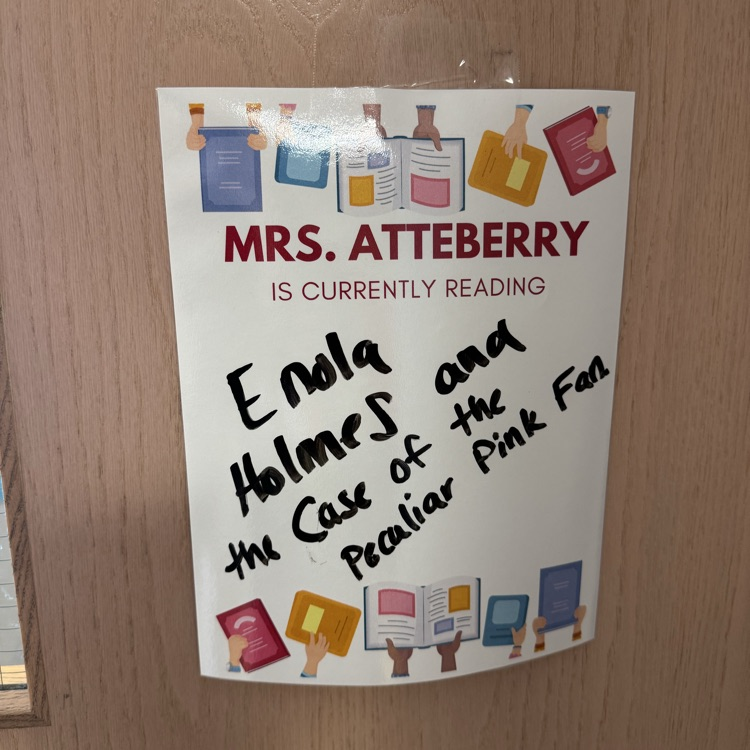 MRS. ATTEBERRY
IS CURRENTLY READING
Enola
Holmes and
the Case of the
Peculiar Pink Fan